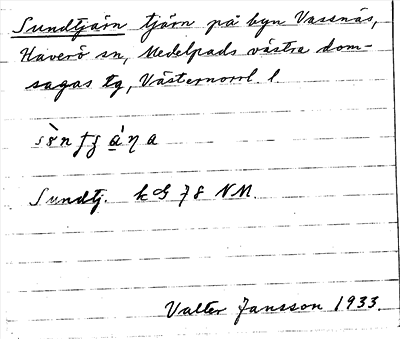 Sundtjärn tjärn på byn Vassnäs,
Haverö sn, Medelpads västra dom-
sagas tg, Västernorrl. l
Sundtj. kG 78 NM.
Valter Jansson 1933.